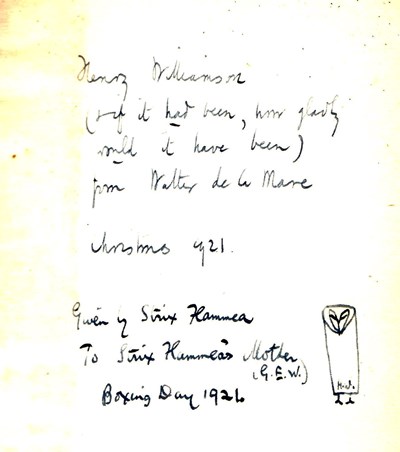 Henry Williamson
(& if it had been, how gladly
would it have been)
from Walter de la Mare
Christmas 1921.
Given by Strix Flammea
To Strix Flammea's Mother
(G.E.W.)
Boxing Day 1921
H.W.